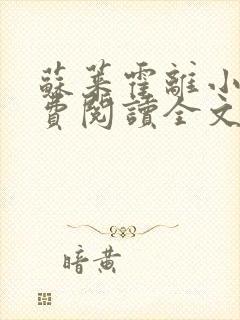 蘇茉霍離小
費閱讀全文
暗黄